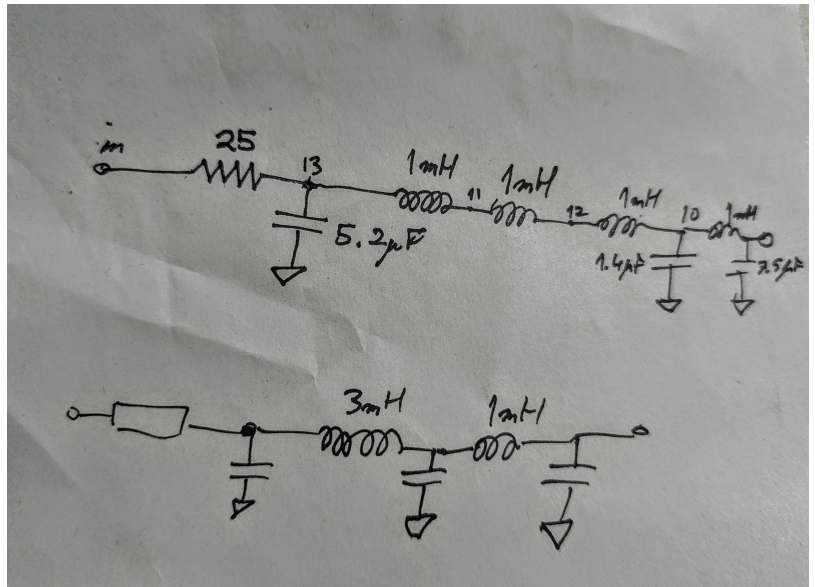 in
25
13
1mH
11
1mH
12
1mH
10
1mH
5.2µF
1.4µF
7.5µF
3mH
1mH